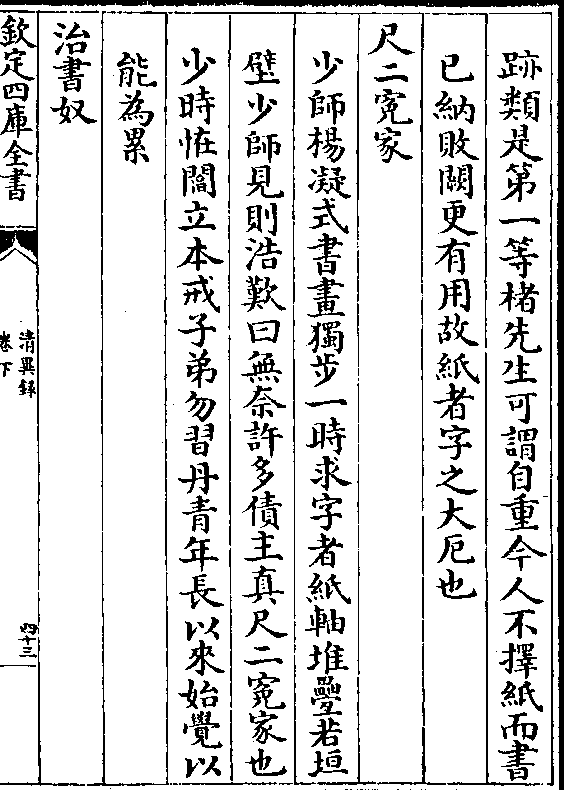 跡類是第一等楮先生可謂自重今人不擇紙而書
已納敗闕更有用故紙者字之大厄也
尺二寃家
少師楊凝式書畫獨步一時求字者紙軸堆疊若垣
壁少師見則浩歎曰無奈許多債主真尺二寃家也
少時恠閻立本戒子弟勿習丹青年長以來始覺以
能為累
治書奴
欽定四庫全書
清異錄
卷下
四十三